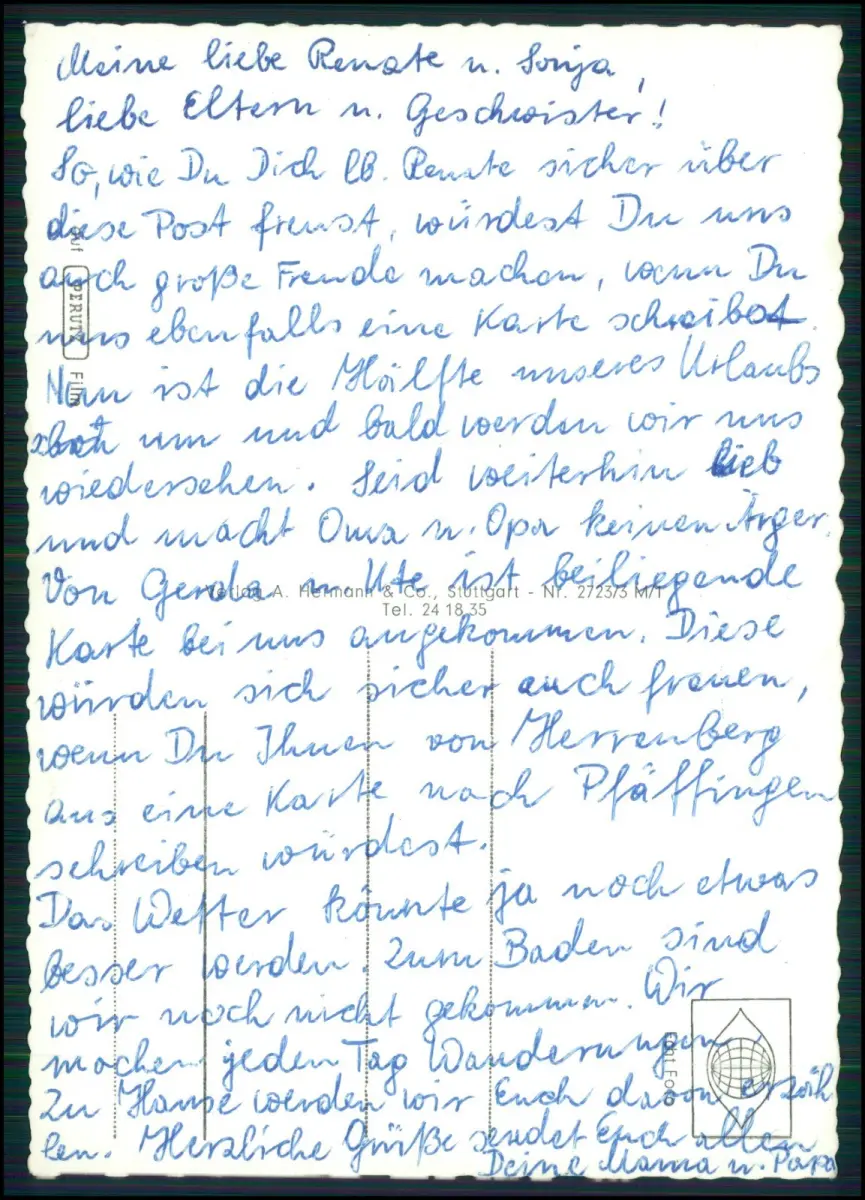 Meine liebe Renate u. Sonja,
liebe Eltern u. Geschwister!
So, wie Du Dich lb. Renate sicher über
diese Post freust, würdest Du uns
auch große Freude machen, wenn Du
uns ebenfalls eine Karte schreibst.
Nun ist die Hälfte unseres Urlaubs
um und bald werden wir uns
wiedersehen. Seid weiterhin lieb
und macht Oma u. Opa keinen Ärger.
Von Gerda u. Ute ist beiliegende
Karte bei uns angekommen. Diese
würden sich sicher auch freuen,
wenn Du Ihnen von Herrenberg
aus eine Karte nach Pfäffingen
schreiben würdest.
Das Wetter könnte ja noch etwas
besser werden. Zum Baden sind
wir noch nicht gekommen. Wir
machen jeden Tag Wanderungen.
Zu Hause werden wir Euch davon erzäh
len. Herzliche Grüße sendet Euch allen
Deine Mama u. Papa
auf PERUTZ Film
Verlag A. Hermann & Co., Stuttgart - Nr. 272373 M/1
Tel. 24 18 35
Foto